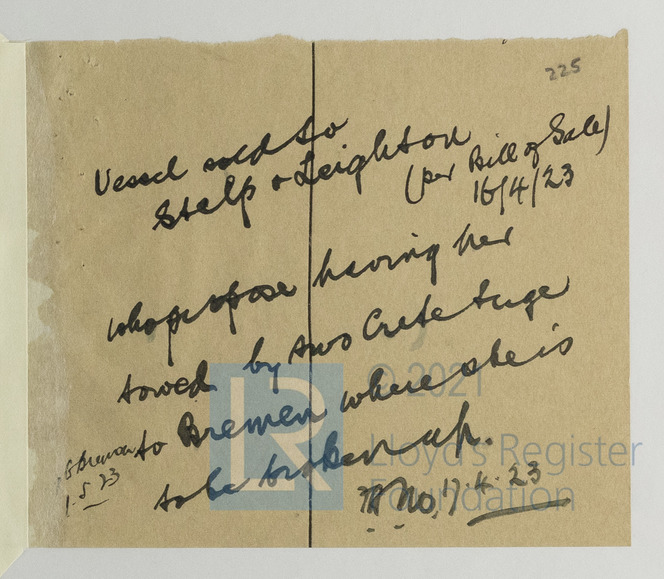 225
Vessel sold to
Stelp & Leighton
(per Bill of Sale)
16/4/23
who propose having her
towed by two Crete tugs
to Bremen where she is
to be broken up.
Bremen
1.5.23
17.4.23
LR
© 2021
Lloyd's Register
Foundation